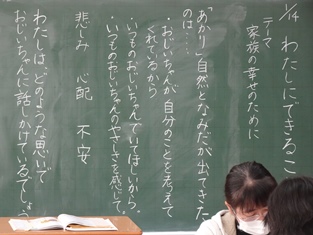 1/14 わたしにできるこ
テーマ
家族の幸せのために
「あかり」自然となみだが出てきた
のは・・・・
・おじいちゃんが自分のことを考えて
くれているから
・いつものおじいちゃんでいてほしいから。
・いつものおじいちゃんのやさしさを感じて
悲しみ 心配 不安
わたしは、どのような思いで
おじいちゃんに話しかけているでしょう